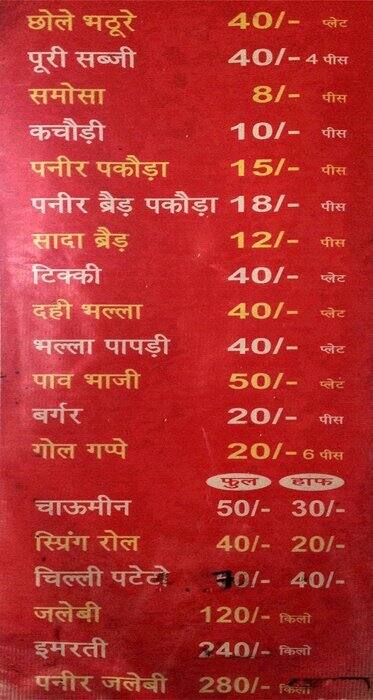 छोले भठूरे 40/- प्लेट
पूरी सब्जी 40/- 4 पीस
समोसा 8/- पीस
कचौड़ी 10/- पीस
पनीर पकौड़ा 15/- पीस
पनीर ब्रैड़ पकौड़ा 18/- पीस
सादा ब्रैड़ 12/- पीस
टिक्की 40/- प्लेट
दही भल्ला 40/- प्लेट
भल्ला पापड़ी 40/- प्लेट
पाव भाजी 50/- प्लेट
बर्गर 20/- पीस
गोल गप्पे 20/- 6 पीस
फुल हाफ
चाऊमीन 50/- 30/-
स्प्रिंग रोल 40/- 20/-
चिल्ली पटेटो 40/-
जलेबी 120/- किलो
इमरती 240/- किलो
पनीर जलेबी 280/-